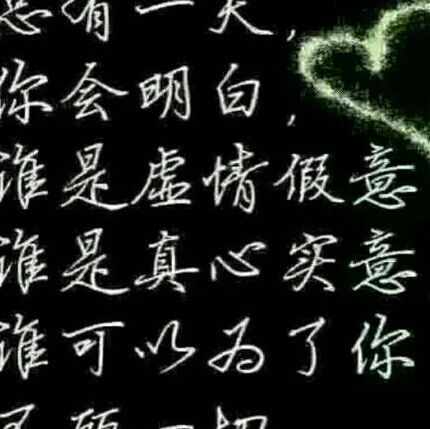 总有一天，
你会明白，
谁是虚情假意
谁是真心实意
谁可以为了你
不顾一切